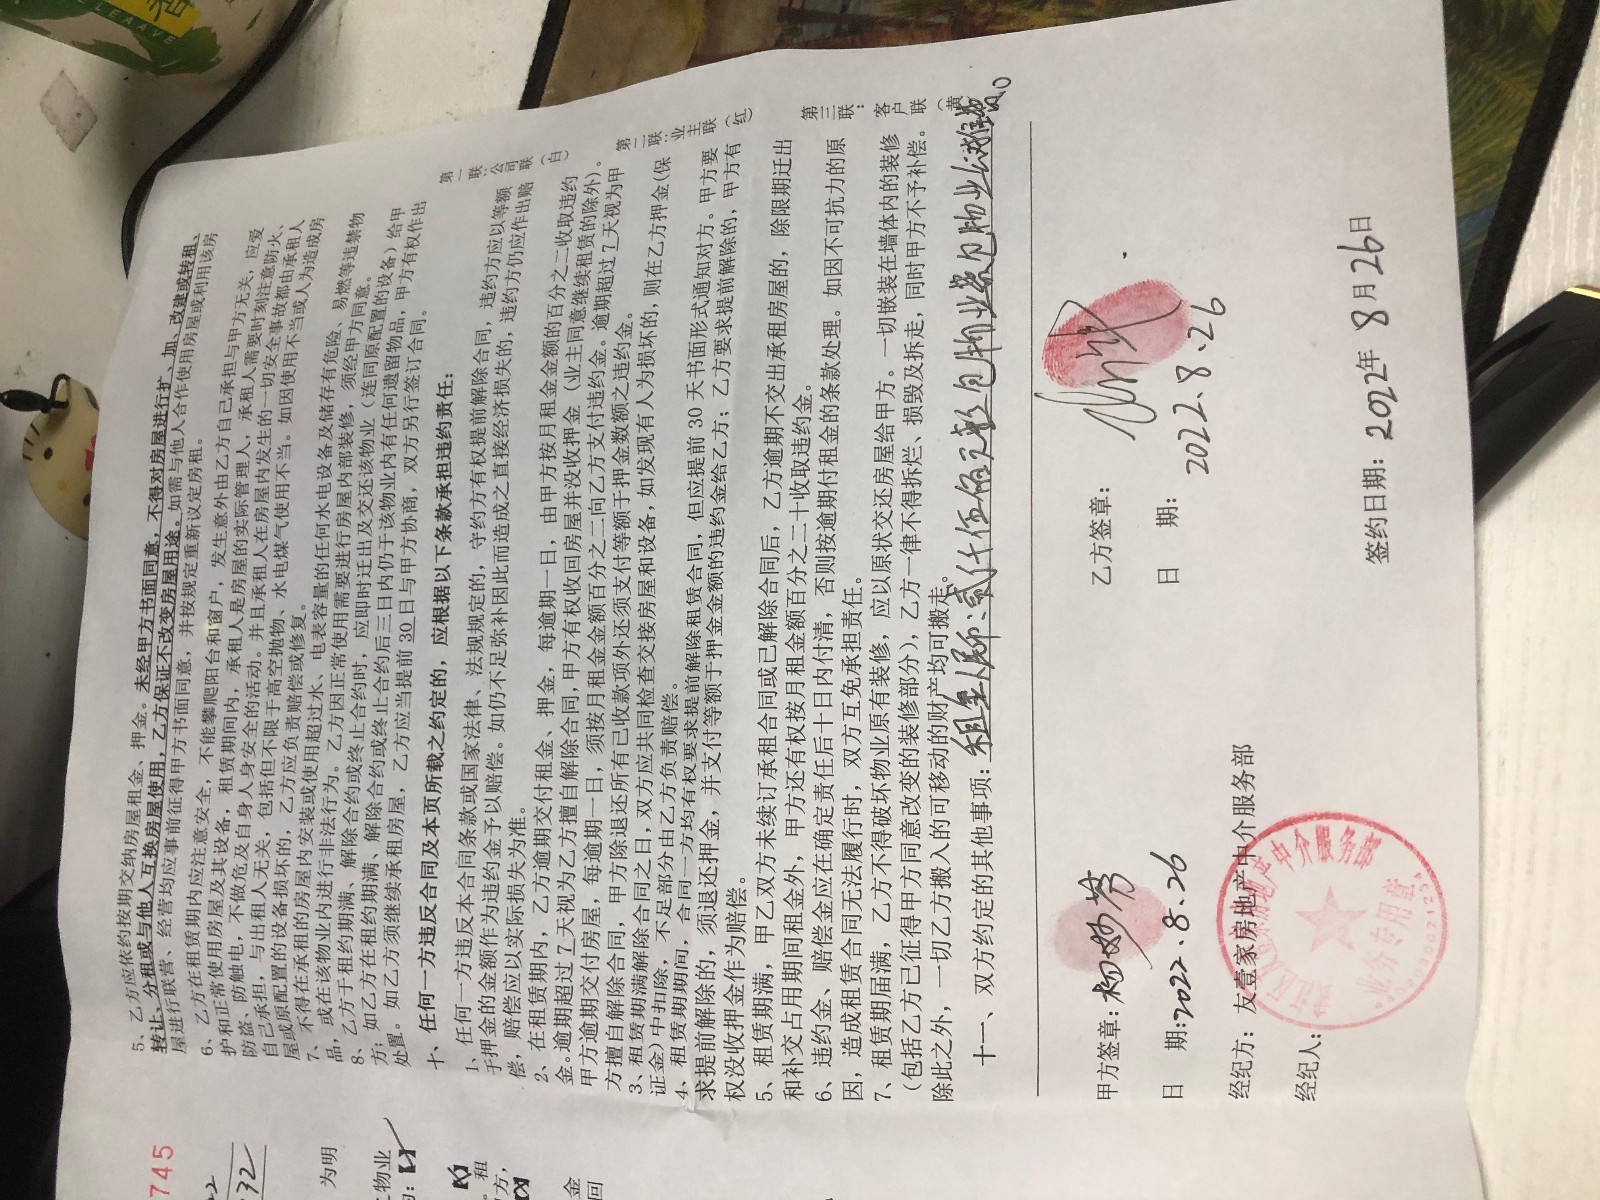 5、乙方应依约按期交纳房屋租金、押金。未经甲方书面同意，不得对房屋进行扩、加、改建或转租、
转让、分租或与他人互换房屋使用，乙方保证不改变房屋用途。如需与他人合作使用房屋或利用该房
屋进行联营、经营均应事前征得甲方书面同意，并按规定重新议定房租。
6、乙方在租赁期内应注意安全，不能攀爬阳台和窗户，发生意外由乙方自己承担与甲方无关，应爱
护和正常使用房屋及其设备，租赁期间内，承租人是房屋的实际管理人，承租人需要时刻注意防火、
防盗、防触电，不做危及自身人身安全的活动。并且承租人在房屋内发生的一切安全事故都由承租人
自己承担，与出租人无关，包括但不限于高空抛物、水电煤气使用不当。如因使用不当或人为造成房
屋或原配置的设备损坏的，乙方应负责赔偿或修复。
7、不得在承租的房屋内安装或使用超过水、电表容量的任何水电设备及储存有危险、易燃等违禁物
品，或在该物业内进行非法行为。乙方因正常使用需要进行房屋内部装修，须经甲方同意。
8、乙方于租约期满、解除合约或终止合约时，应即时迁出及交还该物业（连同原配置的设备）给甲
方；如乙方在租约期满、解除合约或终止合约后三日内仍于该物业内有任何遗留物品，甲方有权作出
处置。如乙方须继续承租房屋，乙方应当提前30日与甲方协商，双方另行签订合同。
十、任何一方违反合同及本页所载之约定的，应根据以下条款承担违约责任：
1、任何一方违反本合同条款或国家法律、法规规定的，守约方有权提前解除合同，违约方应以等额
于押金的金额作为违约金予以赔偿。如仍不足弥补因此而造成之直接经济损失的，违约方仍应作出赔
偿，赔偿应以实际损失为准。
2、在租赁期内，乙方逾期交付租金、押金，每逾期一日，由甲方按月租金金额的百分之二收取违约
金。逾期超过7天视为乙方擅自解除合同，甲方有权收回房屋并没收押金（业主同意继续租赁的除外）。
甲方逾期交付房屋，每逾期一日，须按月租金金额百分之二向乙方支付违约金。逾期超过7天视为甲
方擅自解除合同，甲方除退还所有已收款项外还须支付等额于押金数额之违约金。
3、租赁期满解除合同之日，双方应共同检查交接房屋和设备，如发现有人为损坏的，则在乙方押金(保
证金)中扣除，不足部分由乙方负责赔偿。
4、租赁期期间，合同一方均有权要求提前解除租赁合同，但应提前30天书面形式通知对方。甲方要
求提前解除的，须退还押金，并支付等额于押金金额的违约金给乙方；乙方要求提前解除的，甲方有
权没收押金作为赔偿。
5、租赁期满，甲乙双方未续订承租合同或已解除合同后，乙方逾期不交出承租房屋的，除限期迁出
和补交占用期间租金外，甲方还有权按月租金额百分之二十收取违约金。
6、违约金、赔偿金应在确定责任后十日内付清，否则按逾期付租金的条款处理。如因不可抗力的原
因，造成租赁合同无法履行时，双方互免承担责任。
7、租赁期届满，乙方不得破坏物业原有装修，应以原状交还房屋给甲方。一切嵌装在墙体内的装修
（包括乙方已征得甲方同意改变的装修部分），乙方一律不得拆烂、损毁及拆走，同时甲方不予补偿。
除此之外，一切乙方搬入的可移动的财产均可搬走。
十一、双方约定的其他事项：租金人民币：贰仟伍佰元整包物业
第一联：公司联（白）
第二联：业主联（红）
第三联：客户联（黄
甲方签章：杨妙芳
乙方签章：
日 期：2022.8.26
日 期：2022.8.26
经纪方：友壹家房地产中介服务部
经纪人：
签约日期：2022年8月26日
中介服务部
业务专用章
745
32
为明
物业
租
金
回